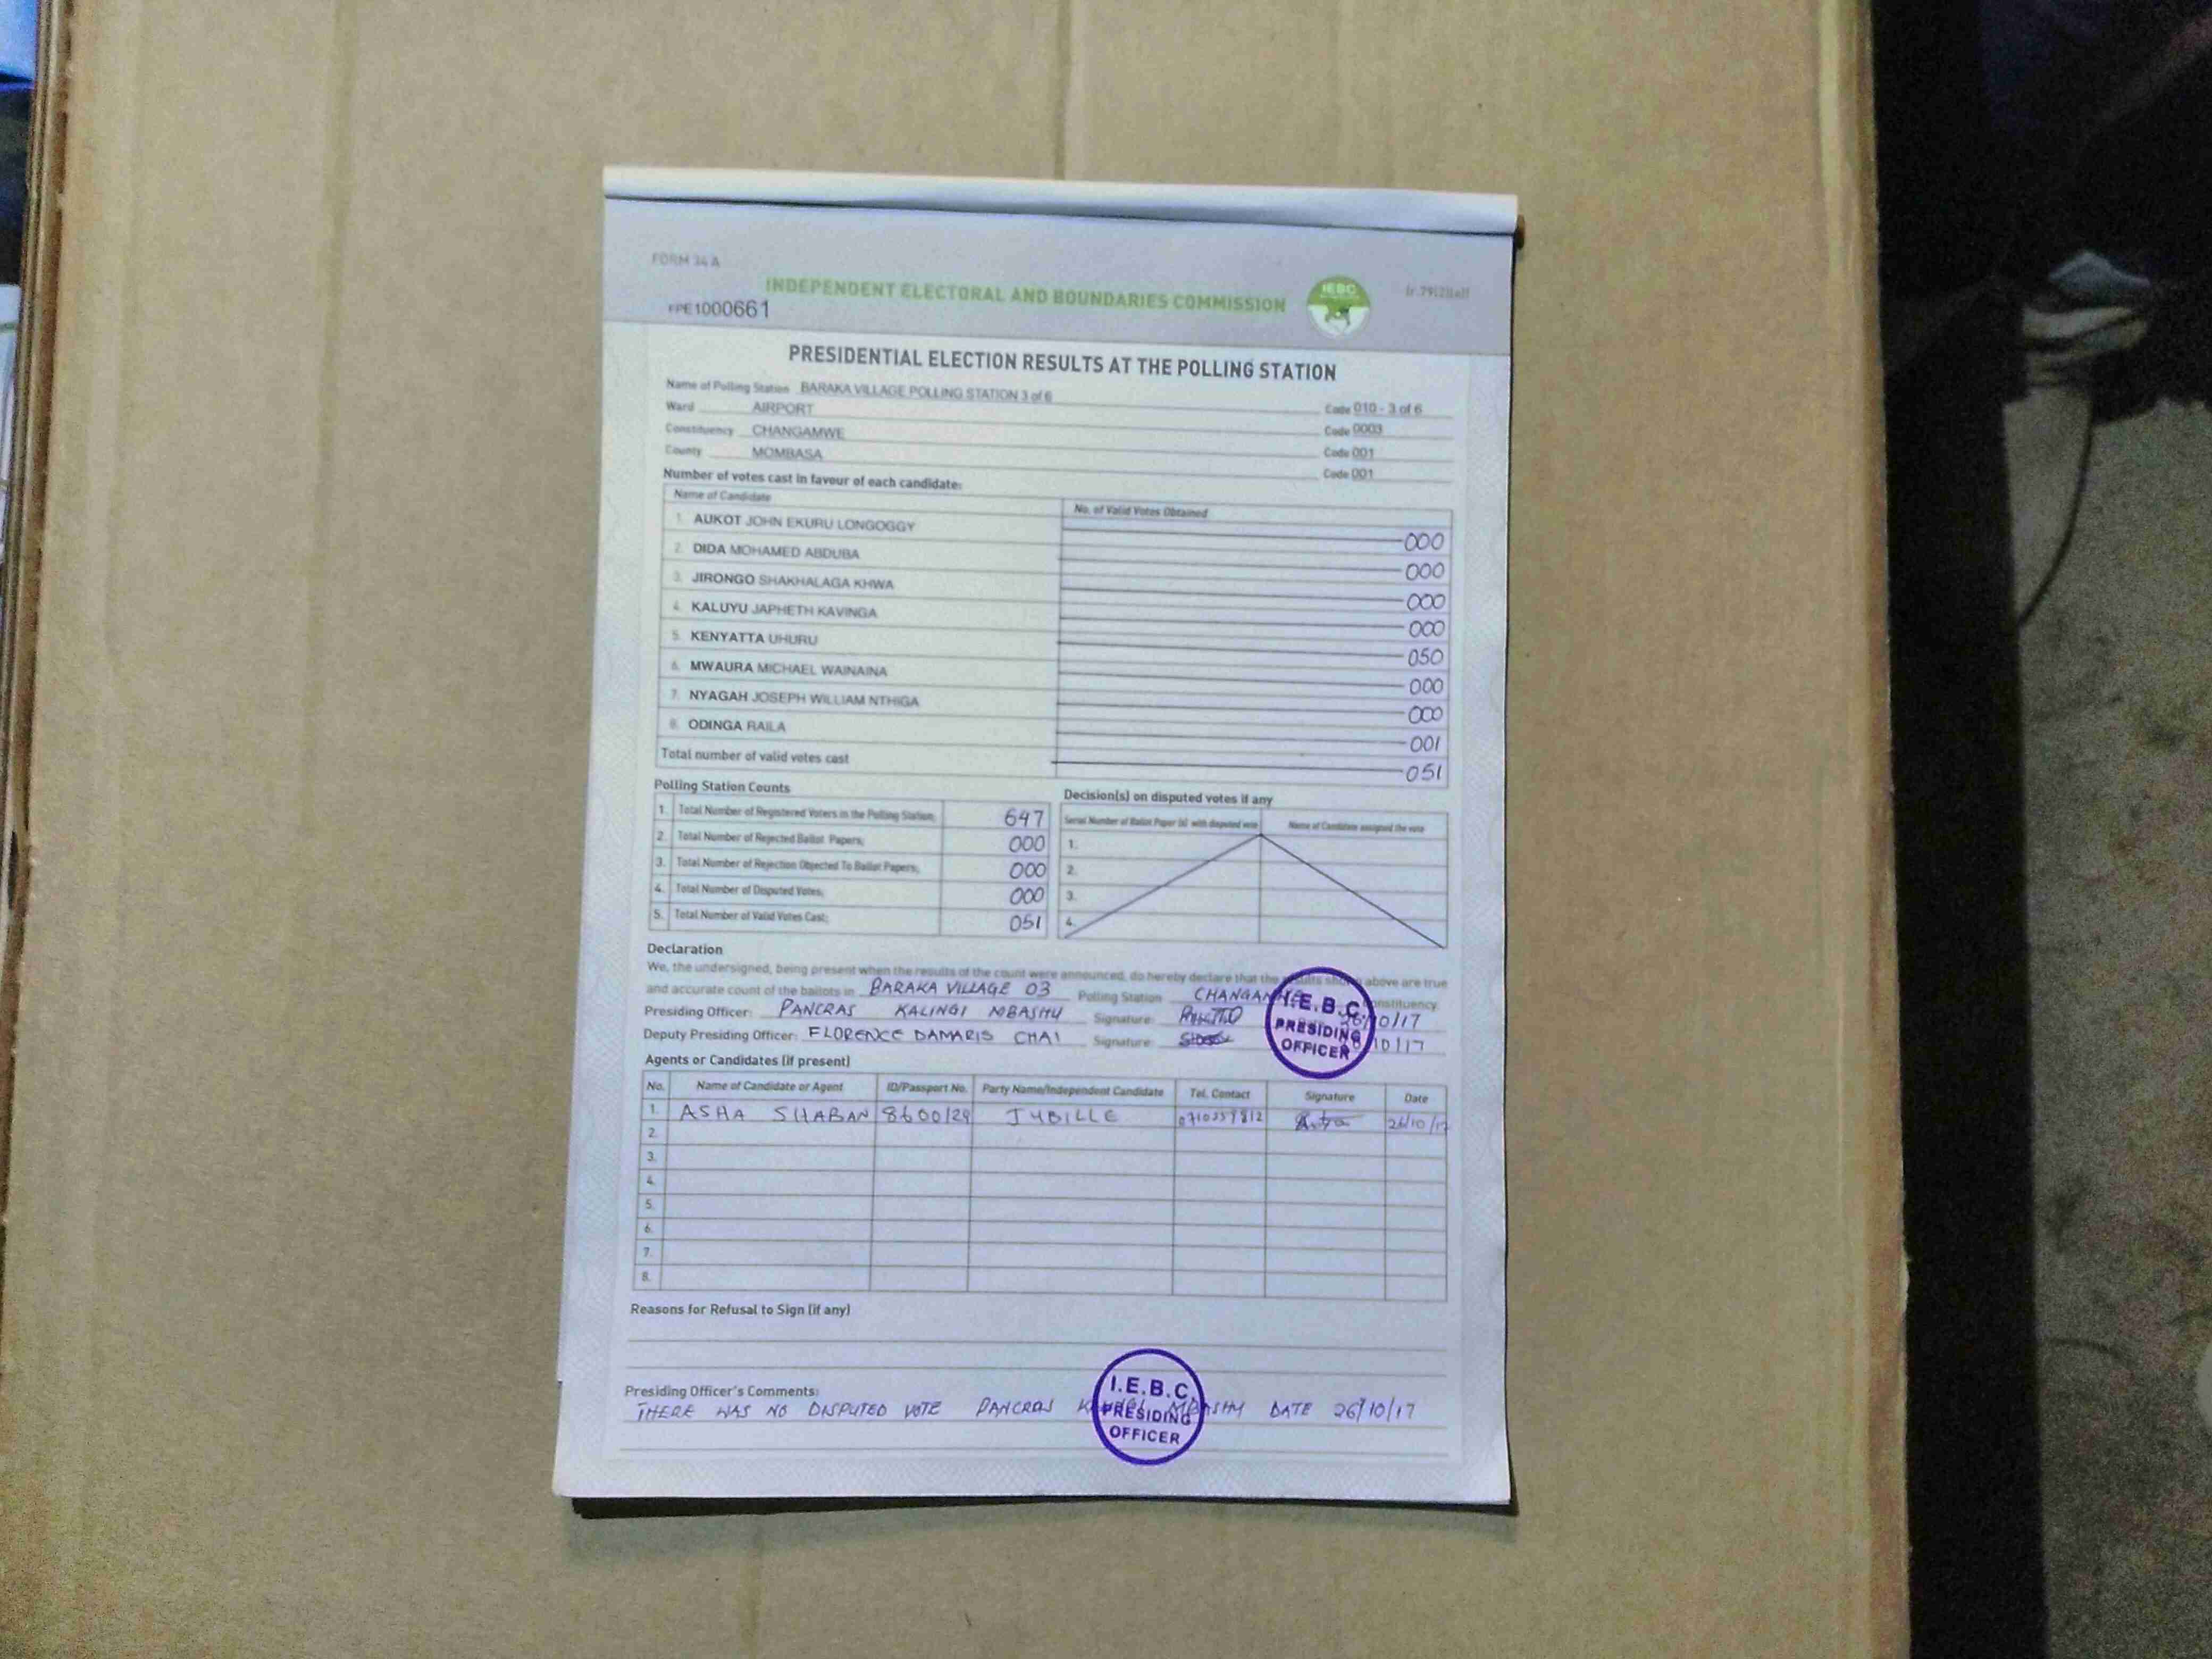 FORM 34 A
INDEPENDENT ELECTORAL AND BOUNDARIES COMMISSION
IEBC
FPE1000661
PRESIDENTIAL ELECTION RESULTS AT THE POLLING STATION
Name of Polling Station BARAKA VILLAGE POLLING STATION 3 of 6 Code 010 - 3 of 6
Ward AIRPORT Code 0003
Constituency CHANGAMWE Code 001
County MOMBASA Code 001
Number of votes cast in favour of each candidate:
Name of Candidate No. of Valid Votes Obtained
1. AUKOT JOHN EKURU LONGOGGY 000
2. DIDA MOHAMED ABDUBA 000
3. JIRONGO SHAKHALAGA KHWA 000
4. KALUYU JAPHETH KAVINGA 000
5. KENYATTA UHURU 050
6. MWAURA MICHAEL WAINAINA 000
7. NYAGAH JOSEPH WILLIAM NTHIGA 000
8. ODINGA RAILA 001
Total number of valid votes cast 051
Polling Station Counts
1. Total Number of Registered Voters in the Polling Station; 647
2. Total Number of Rejected Ballot Papers; 000
3. Total Number of Rejection Objected To Ballot Papers; 000
4. Total Number of Disputed Votes; 000
5. Total Number of Valid Votes Cast; 051
Decision(s) on disputed votes if any
Serial Number of Ballot Paper (s) with disputed vote Name of Candidate assigned the vote
1.
2.
3.
4.
Declaration
We, the undersigned, being present when the results of the count were announced, do hereby declare that the results shown above are true
and accurate count of the ballots in BARAKA VILLAGE 03 Polling Station CHANGAMWE Constituency
Presiding Officer: PANCRAS KALINGI MBASHU Signature: 26/10/17
Deputy Presiding Officer: FLORENCE DAMARIS CHAI Signature: 26/10/17
I.E.B.C.
PRESIDING
OFFICER
Agents or Candidates (if present)
No. Name of Candidate or Agent ID/Passport No. Party Name/Independent Candidate Tel. Contact Signature Date
1. ASHA SHABAN 8600129 JUBILLE 26/10/17
2.
3.
4.
5.
6.
7.
8.
Reasons for Refusal to Sign (if any)
Presiding Officer's Comments:
THERE WAS NO DISPUTED VOTE PANCRAS KALINGI MBASHU DATE 26/10/17
I.E.B.C.
PRESIDING
OFFICER